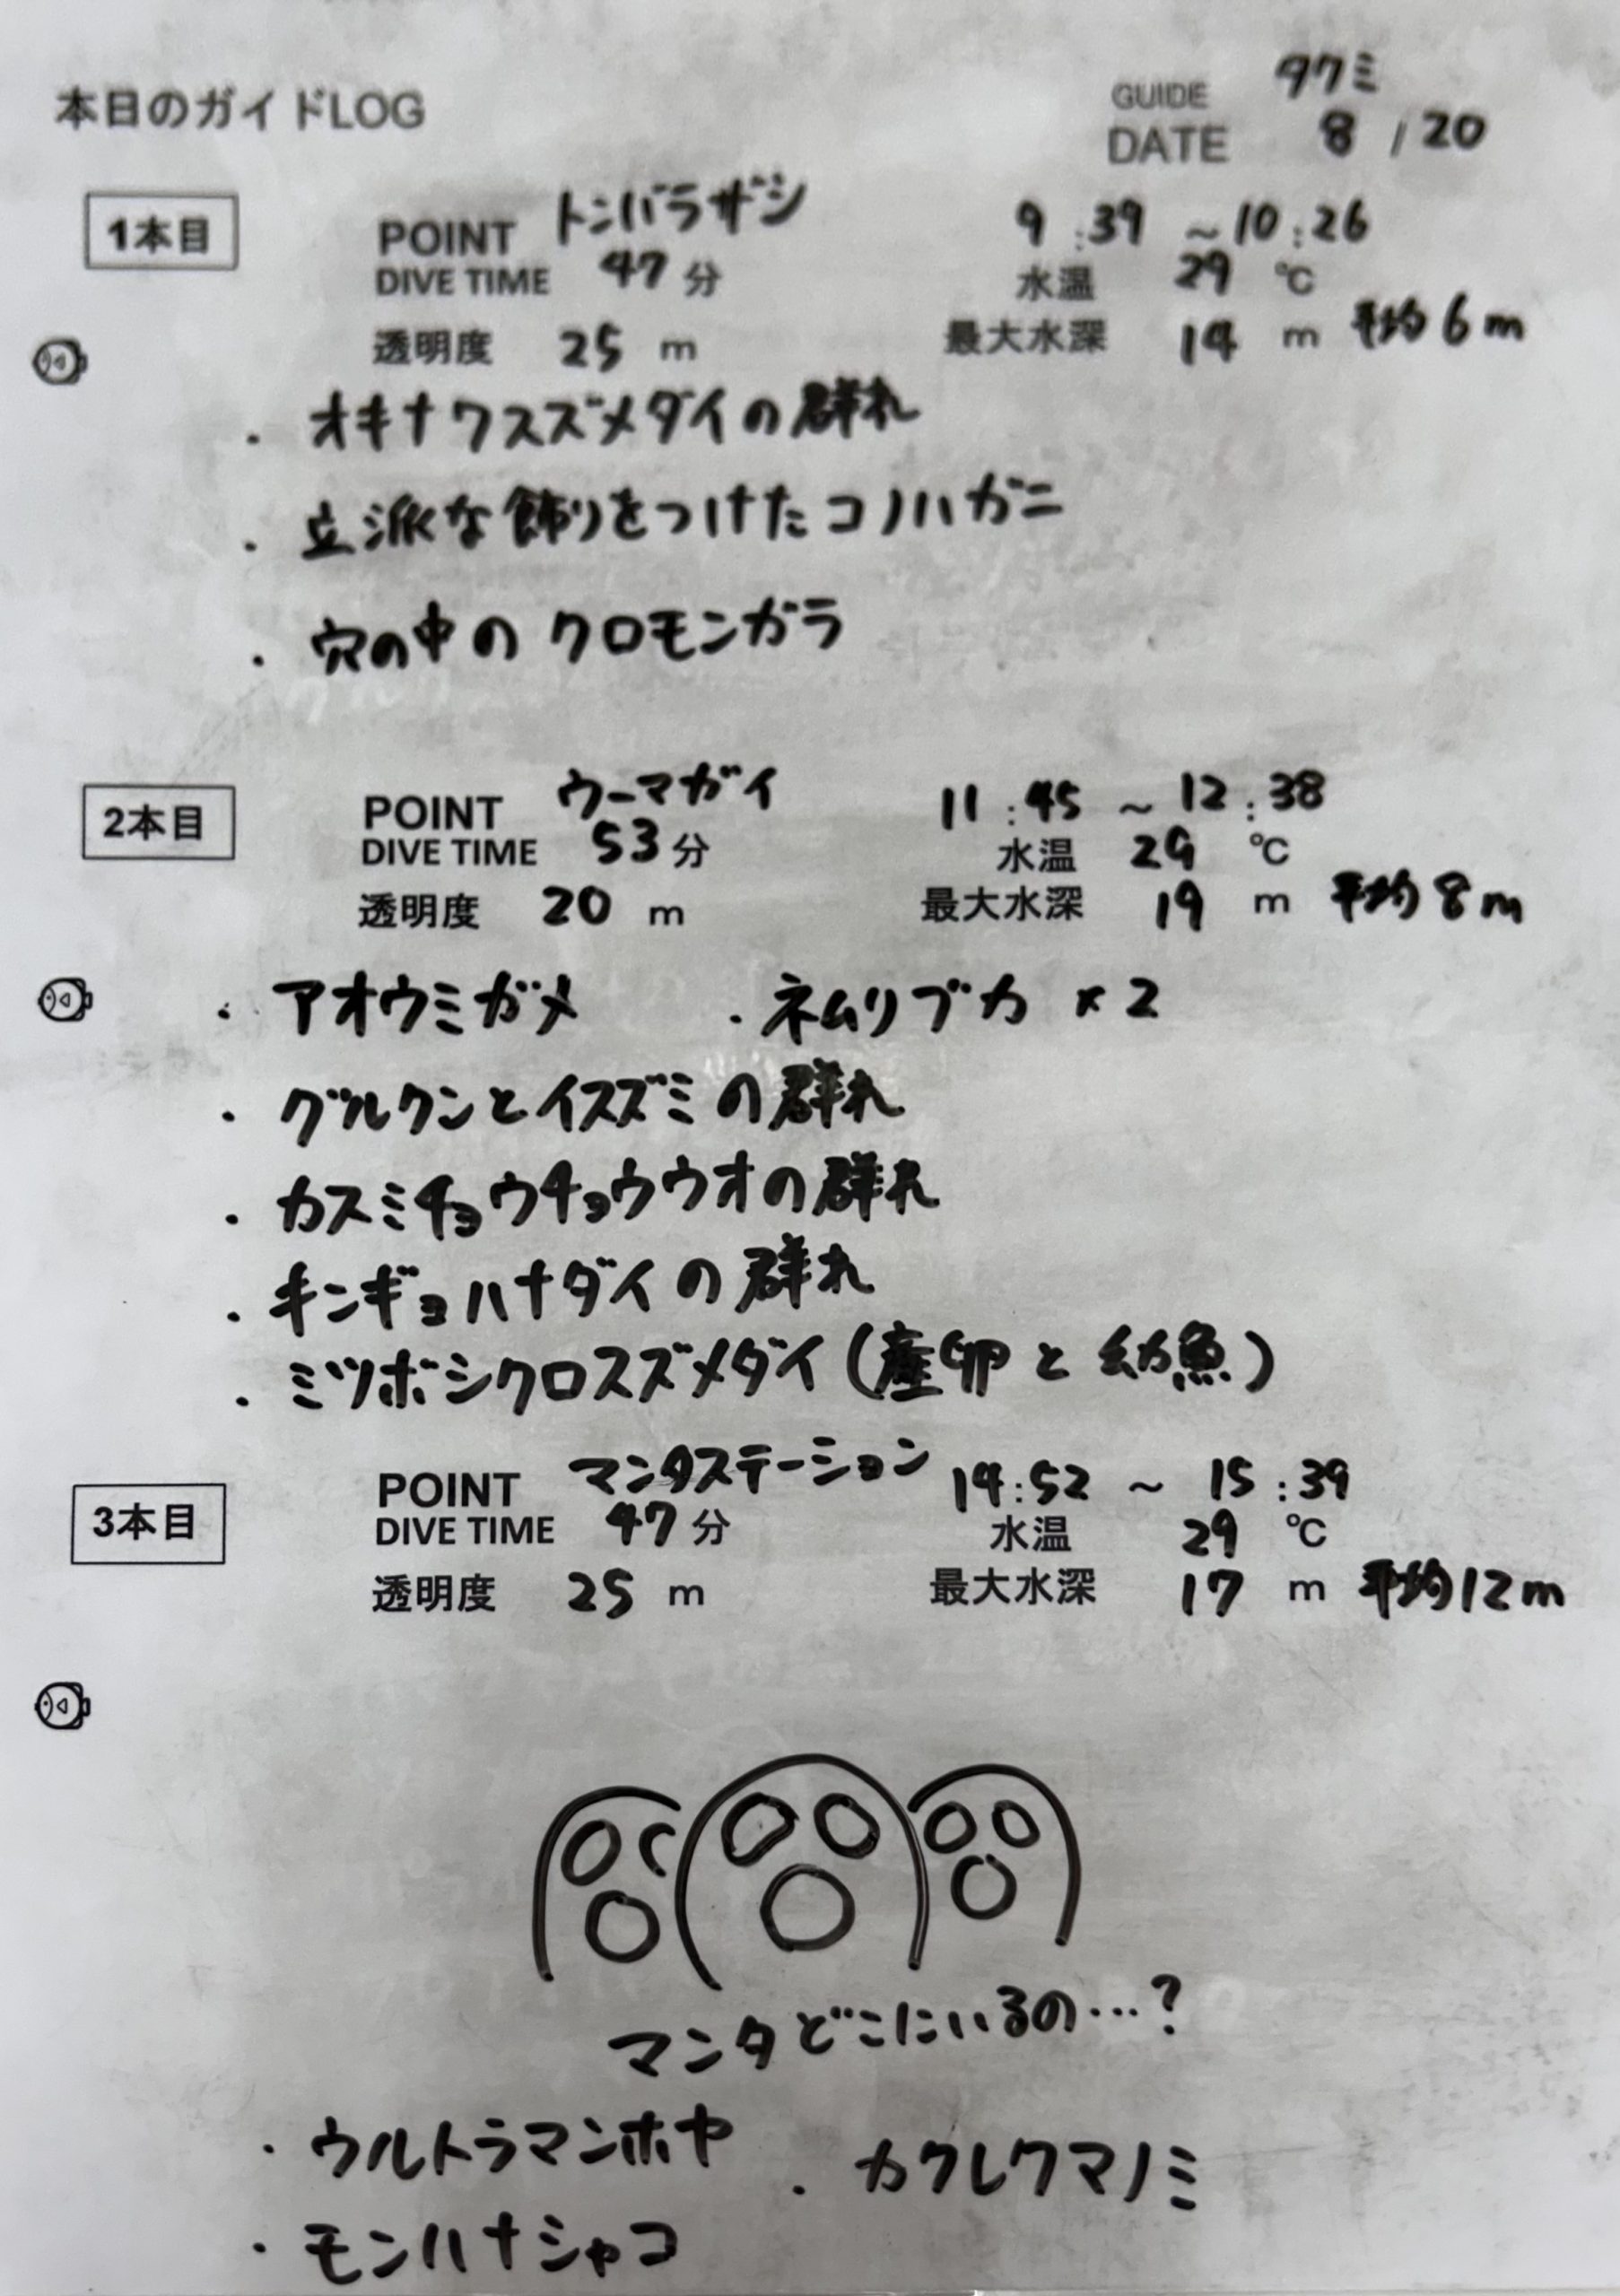 本日のガイドLOG
GUIDE タクミ
DATE 8 / 20
1本目
POINT トンバラザシ 9:39 ~10:26
DIVE TIME 47 分 水温 29 ℃
透明度 25 m 最大水深 14 m 平均6m
・オキナワスズメダイの群れ
・立派な飾りをつけたコノハガニ
・穴の中の クロモンガラ
2本目
POINT ウーマガイ 11:45 ~ 12:38
DIVE TIME 53 分 水温 29 ℃
透明度 20 m 最大水深 19 m 平均8m
・アオウミガメ ・ネムリブカ ×2
・グルクンとイスズミの群れ
・カスミチョウチョウウオの群れ
・キンギョハナダイの群れ
・ミツボシクロスズメダイ(産卵と幼魚)
3本目
POINT マンタステーション 14:52 ~ 15:39
DIVE TIME 47 分 水温 29 ℃
透明度 25 m 最大水深 17 m 平均12m
マンタどこにいるの…?
・ウルトラマンホヤ ・カクレクマノミ
・モンハナシャコ